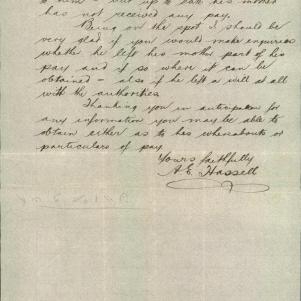 to him - but up to date his mother
has not received any pay.
Being on the spot I should be
very glad if you would make enquiries
whether he left his mother part of his
pay and if so where it can be
obtained - also if he left a will at all
with the authorities.
Thanking you in anticipation for
any information you may be able to
obtain either as to his whereabouts or
particulars of pay.
Yours faithfully
A.E. Hassell